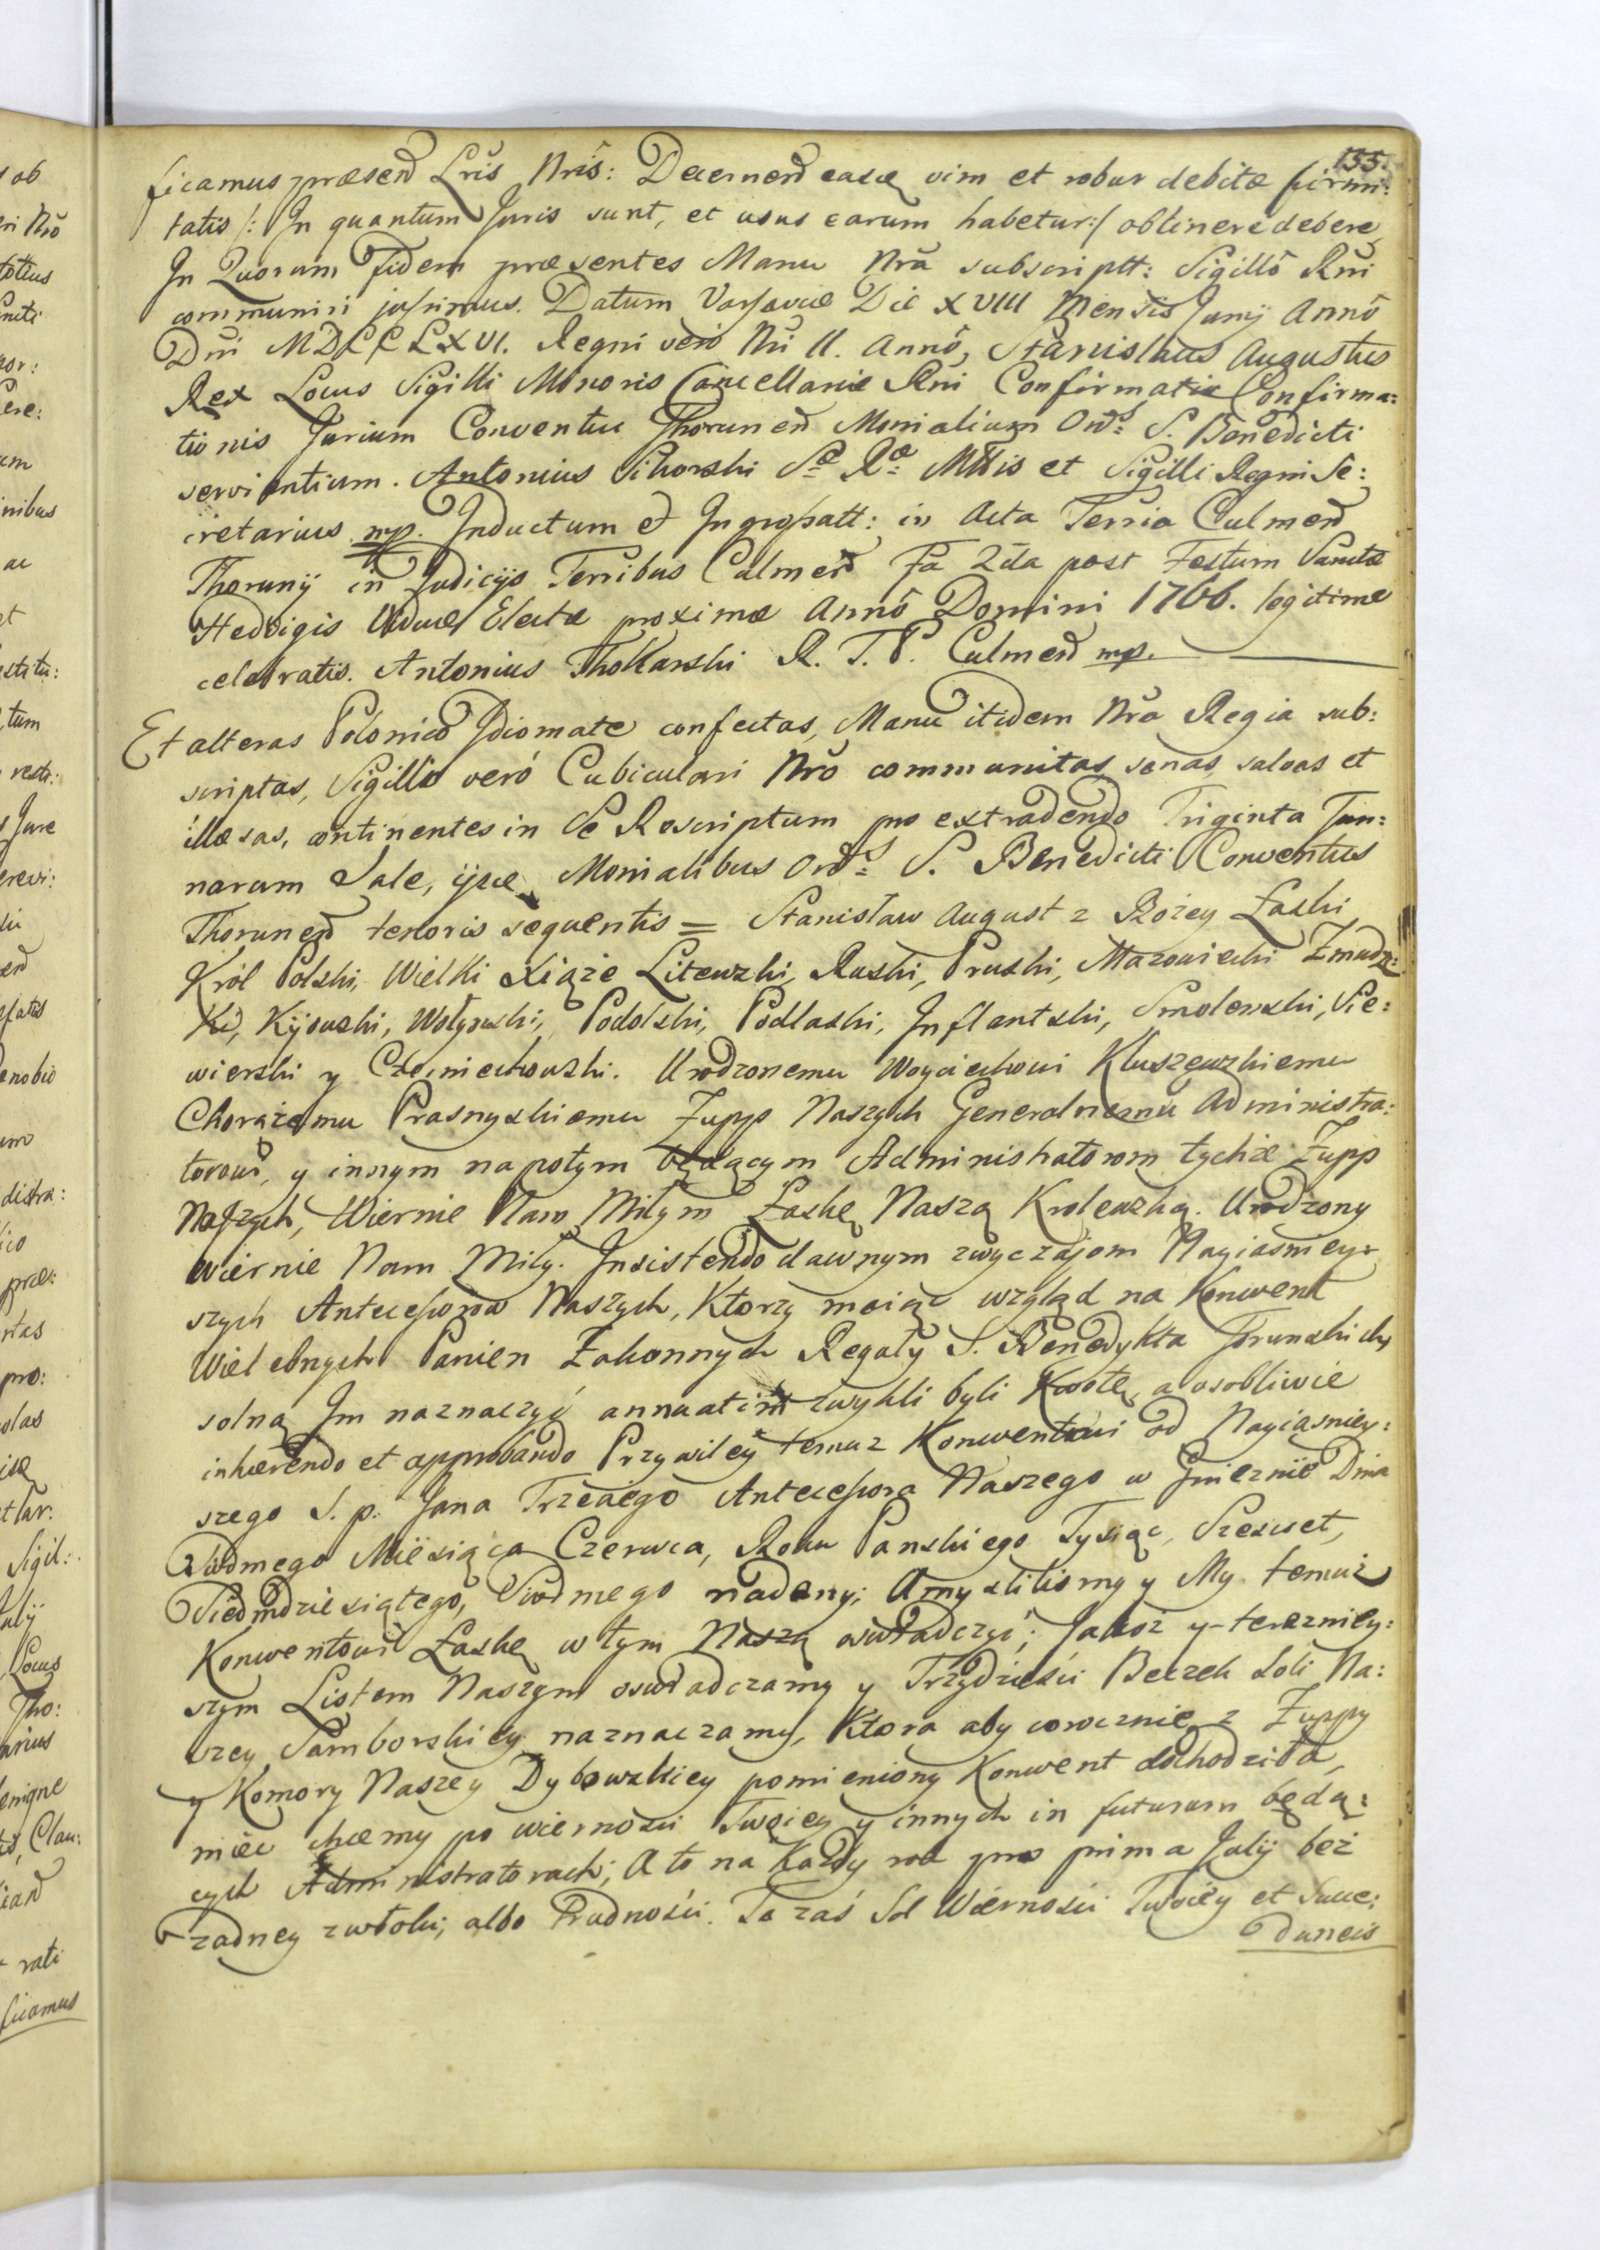 155.
ficamus præsend Lris Nris: Decernend easq vim et robur debitæ firmi:
tatis /: In quantum Juris sunt, et usus earum habetur :/ obtinere debere
In Quorum Fidem præsentes Manu Nrā subscriptt: Sigillô Rni
communiri jussimus. Datum Varsaviæ Die XVIII Mensis Junij Annô
Dni MDCCLXVI. Regni verò Nri II. Annô, Stanislaus Augustus
Rex Locus Sigilli Minoris Cancellariæ Rni Confirmatio Confirma:
tionis Jurium Conventui Thorunend Monialium Ords S. Benedicti
servientium. Antonius Sikorski Sæ Ræ Mttis et Sigilli Regni Se:
cretarius mp. Inductum & Ingrossatt: in Acta Terria Culmend
Thorunij in Judicijs Terribus Culmend Fa 2da post Festum Sanctæ
Hedvigis Viduæ Electæ proximæ Annô Domini 1766. legitime
celebratis. Antonius Thokarski R. T. P. Culmend mp.
Et alteras Polonico Idiomate confectas, Manu itidem Nra Regia sub:
scriptas, Sigillo veró Cubiculari Nro communitas sanas, salvas et
illæsas, continentes in Se Rescriptum pro extradendo Triginta Tun:
narum Sale, ijsq Monialibus Ords S. Benedicti Conventus
Thorunend tenoris sequentis = Stanisław August z Bożey Łaski
Król Polski, Wielki Xiąże Litewski, Ruski, Pruski, Mazowiecki Żmudz:
ki, Kijowski, Wołyński, Podolski, Podlaski, Inflantski, Smolenski, Sie:
wierski y Czerniechowski. Urodzonemu Woyciechowi Kluszewskiemu
Chorążemu Prasnyskiemu Żupp Naszych Generalnemu Administra:
torowi, y innym napotym będącym Administratorom tychże Żupp
Naszych, Wiernie Nam Miłym Łaskę Naszą Krolewską. Urodzony
Wiernie Nam Miły. Insistendo dawnym zwyczajom Nayiasmey:
szych Antecessorow Naszych, Ktorzy maiąc wzgląd na Konwent
Wielebnych Panien Zakonnych Reguły S. Benedykta Torunskich,
solną Im naznaczyć annuatim zwykli byli Kwotę, a osobliwie
inhærendo et approbando Przywiley temuz Konwentowi od Nayiasniey:
szego S. p. Jana Trzeciego Antecessora Naszego w Gnieznie Dnia
Siodmego Miesiąca Czerwca, Roku Panskiego Tysiąc, Szescset,
Siedmdziesiątego, Siodmego nadany; Umyslilismy y My temuż
Konwentowi Łaskę w tym Naszą oswiadczyć; Jakoż y-terazniey:
szym Listem Naszym oswiadczamy y Trzydzieści Beczek Soli Na:
szey Samborskiey naznaczamy, Ktora aby corocznie z Żuppy
y Komory Naszey Dybowskiey pomieniony Konwent dochodziła,
mieć chcemy po wiernosci Twoiey y innych in futurum będą:
cych Administratorach; A to na Każdy rok pro prima Julij beż
żadney zwłoki; albo Trudności. Ta zaś Sol Wierności Twoiey et Succe:
daneis